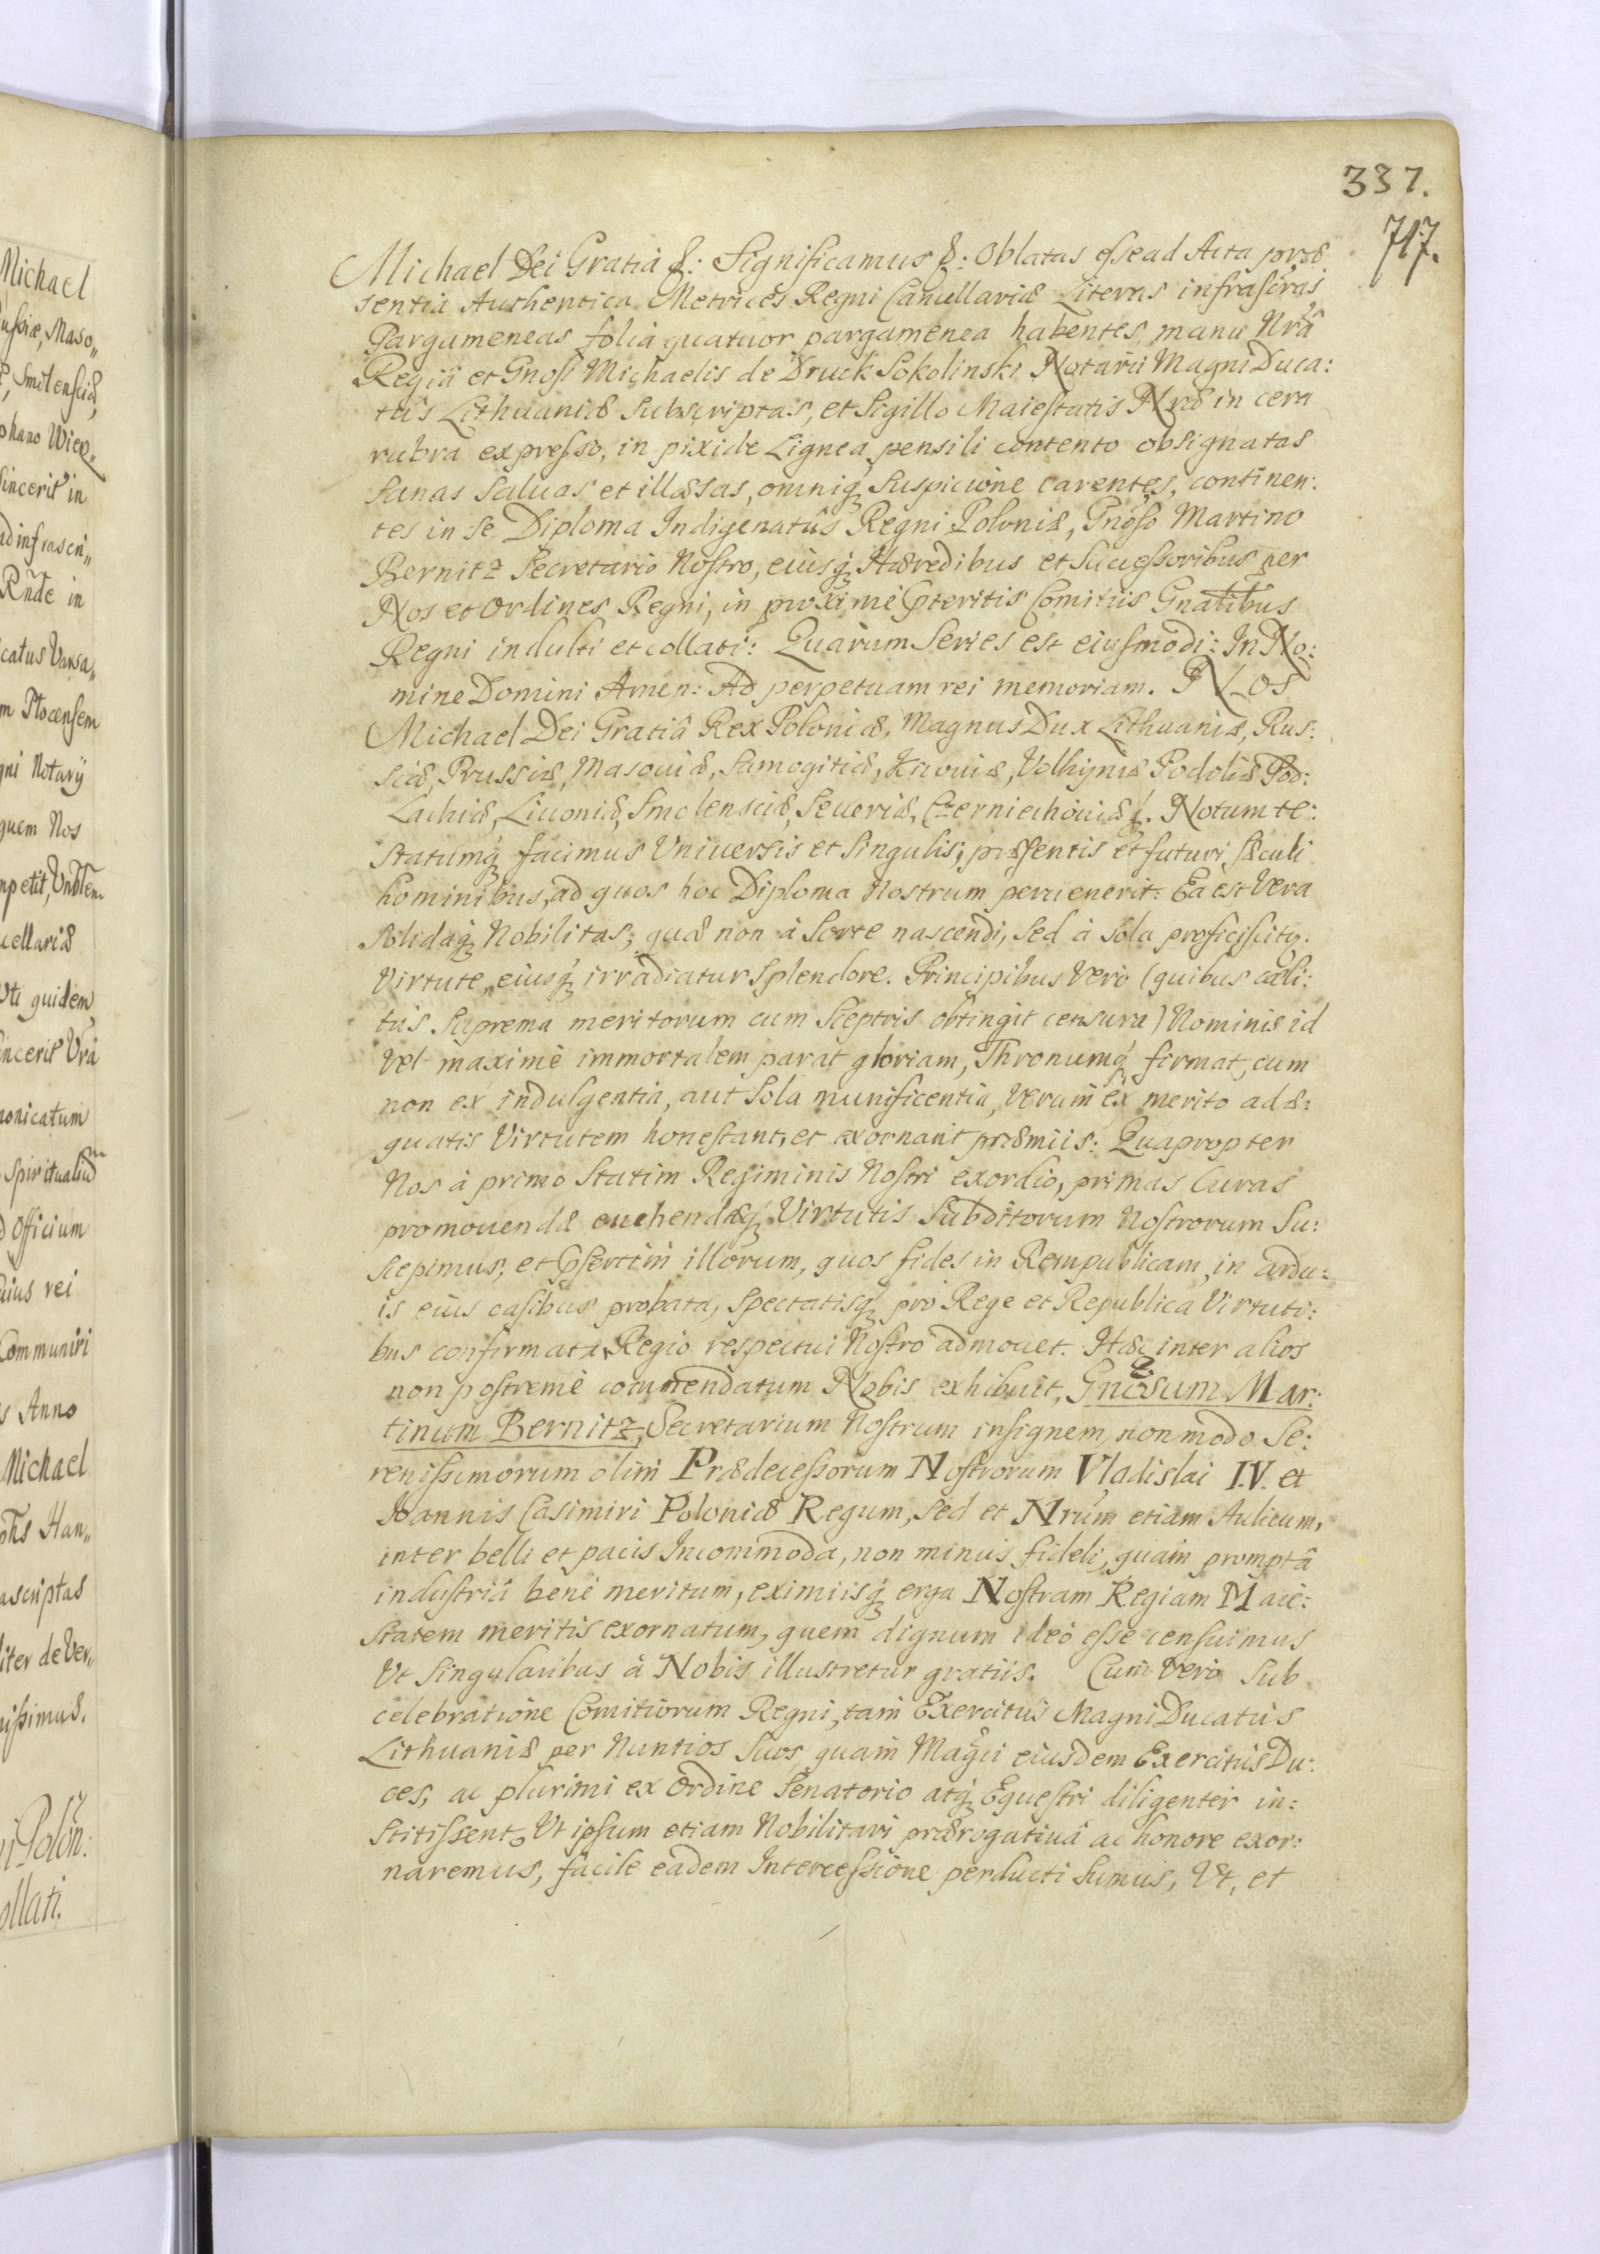 337.
717.
Michael Dei Gratiâ &: Significamus &: Oblatas esse ad Acta præ
sentia Authentica Metrices Regni Cancellariæ Literas infrascras
Pargameneas folia quatuor pargamenea habentes, manu Nrâ
Regiâ et Gnosi Michaelis de Druck Sokolinski Notarii Magni Duca:
tûs Lithuaniæ Subscriptas, et Sigillo Maiestatis Nræ in cera
rubra expresso, in pixide Lignea pensili contento obsignatas
Sanas Saluas et illæsas, omniq Suspicione carentes, continen:
tes in se Diploma Indigenatûs Regni Poloniæ, Gnoso Martino
Bernitz Secretario Nostro, eiusq Hæredibus et Successoribus per
Nos et Ordines Regni, in proximè Pteritis Comitiis Gnalibus
Regni indulti et collati: Quarum Series est eiusmodi: In No:
mine Domini Amen: Ad perpetuam rei memoriam. NOS
Michael Dei Gratiâ Rex Poloniæ, Magnus Dux Lithuaniæ, Rus:
siæ, Prussiæ, Masouiæ, Samogitiæ, Kiiouiæ, Volhyniæ Podoliæ Pod:
Lachiæ, Liuoniæ, Smolensciæ, Seueriæ, Czerniechouiæ &. Notum te:
statumq facimus Vniuersis et Singulis, præsentis et futuri sæculi
hominibus, ad quos hoc Diploma Nostrum peruenerit: Ea est Vera
Solidaq Nobilitas, quæ non à Sorte nascendi, Sed à Sola proficiscitr
Virtute, eiusq irradiatur Splendore. Principibus Verò (quibus cæli:
tùs Suprema meritorum cum Sceptris obtingit censura) Nominis id
Vel maximè immortalem parat gloriam, Thronumq firmat, cum
non ex indulgentia, aut Sola munificentia, Verum ex merito adæ:
quatis Virtutem honestant, et exornant præmiis: Quapropter
Nos à primo Statim Regiminis Nostri exordio, primas Curas
promouendæ euehendæq Virtutis Subditorum Nostrorum Su:
scepimus, et Psertim illorum, quos fides in Rempublicam, in ardu:
is eius casibus probata, Spectatisq pro Rege et Republica Virtuti:
bus confirmata, Regio respectui Nostro admouet. Hæc inter alios
non postremè comendatum Nobis exhibuit, Gnosum Mar:
tinum Bernitz, Secretarium Nostrum insignem, non modo Se:
renissimorum olim Prædecessorum Nostrorum Vladislai IV. et
Ioannis Casimiri Poloniæ Regum, Sed et Nrum etiam Aulicum,
inter belli et pacis Incommoda, non minus fideli, quam promptâ
industriâ benè meritum, eximiisq erga Nostram Regiam Maie:
statem meritis exornatum, quem dignum ideò esse censuimus
Vt Singularibus à Nobis illustretur gratiis. Cum Verò Sub
celebratione Comitiorum Regni, tam Exercitus Magni Ducatus
Lithuaniæ per Nuntios Suos, quam Magni eiusdem Exercitûs Du:
ces, ac plurimi ex Ordine Senatorio atq Equestri diligenter in:
stitissent, Vt ipsum etiam Nobilitari prærogatiuâ ac honore exor:
naremus, facile eadem Intercessione perducti Sumus, Vt, et
Michael
ussiæ, Maso„
Smolensciæ,
phano Wier„
Sincerit in
infrascri„
Rnde in
catus Varsa„
m Plocensem
gni Notarÿ
quem Nos
cellariæ
Vti quidem
incerit Vrâ
nonicatum
Spiritualiu
Officium
uius rei
Communiri
s Anno
Michael
Han„
ascriptas
liter de Ver„
issimus.
ni Polon:
ollati.